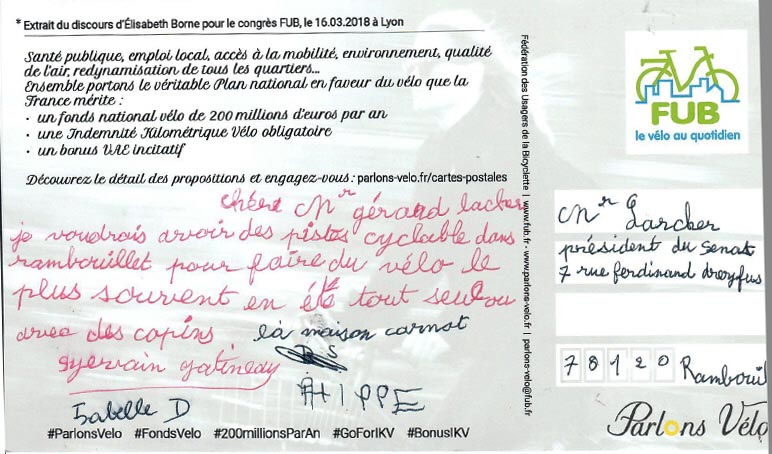 * Extrait du discours d'Élisabeth Borne pour le congrès FUB, le 16.03.2018 à Lyon
Santé publique, emploi local, accès à la mobilité, environnement, qualité
de l'air, redynamisation de tous les quartiers...
Ensemble portons le véritable Plan national en faveur du vélo que la
France mérite :
• un fonds national vélo de 200 millions d'euros par an
• une Indemnité Kilométrique Vélo obligatoire
• un bonus VAE incitatif
Découvrez le détail des propositions et engagez-vous : parlons-velo.fr/cartes-postales
chère Mr gérard lacher
je voudrais avoir des pistes cyclable dans
rambouillet pour faire du vélo le
plus souvent en été tout seul ou
avec des copins la maison carnot
gervain gatineau
Isabelle D
#ParlonsVelo #FondsVelo #200millionsParAn #GoForIKV #BonusIKV
Fédération des Usagers de la Bicyclette | www.fub.fr - www.parlons-velo.fr | parlons-velo@fub.fr
FUB
le vélo au quotidien
Mr Larcher
président du Senat
7 rue ferdinand dreyfus
78120 Rambouil
Parlons Vélo